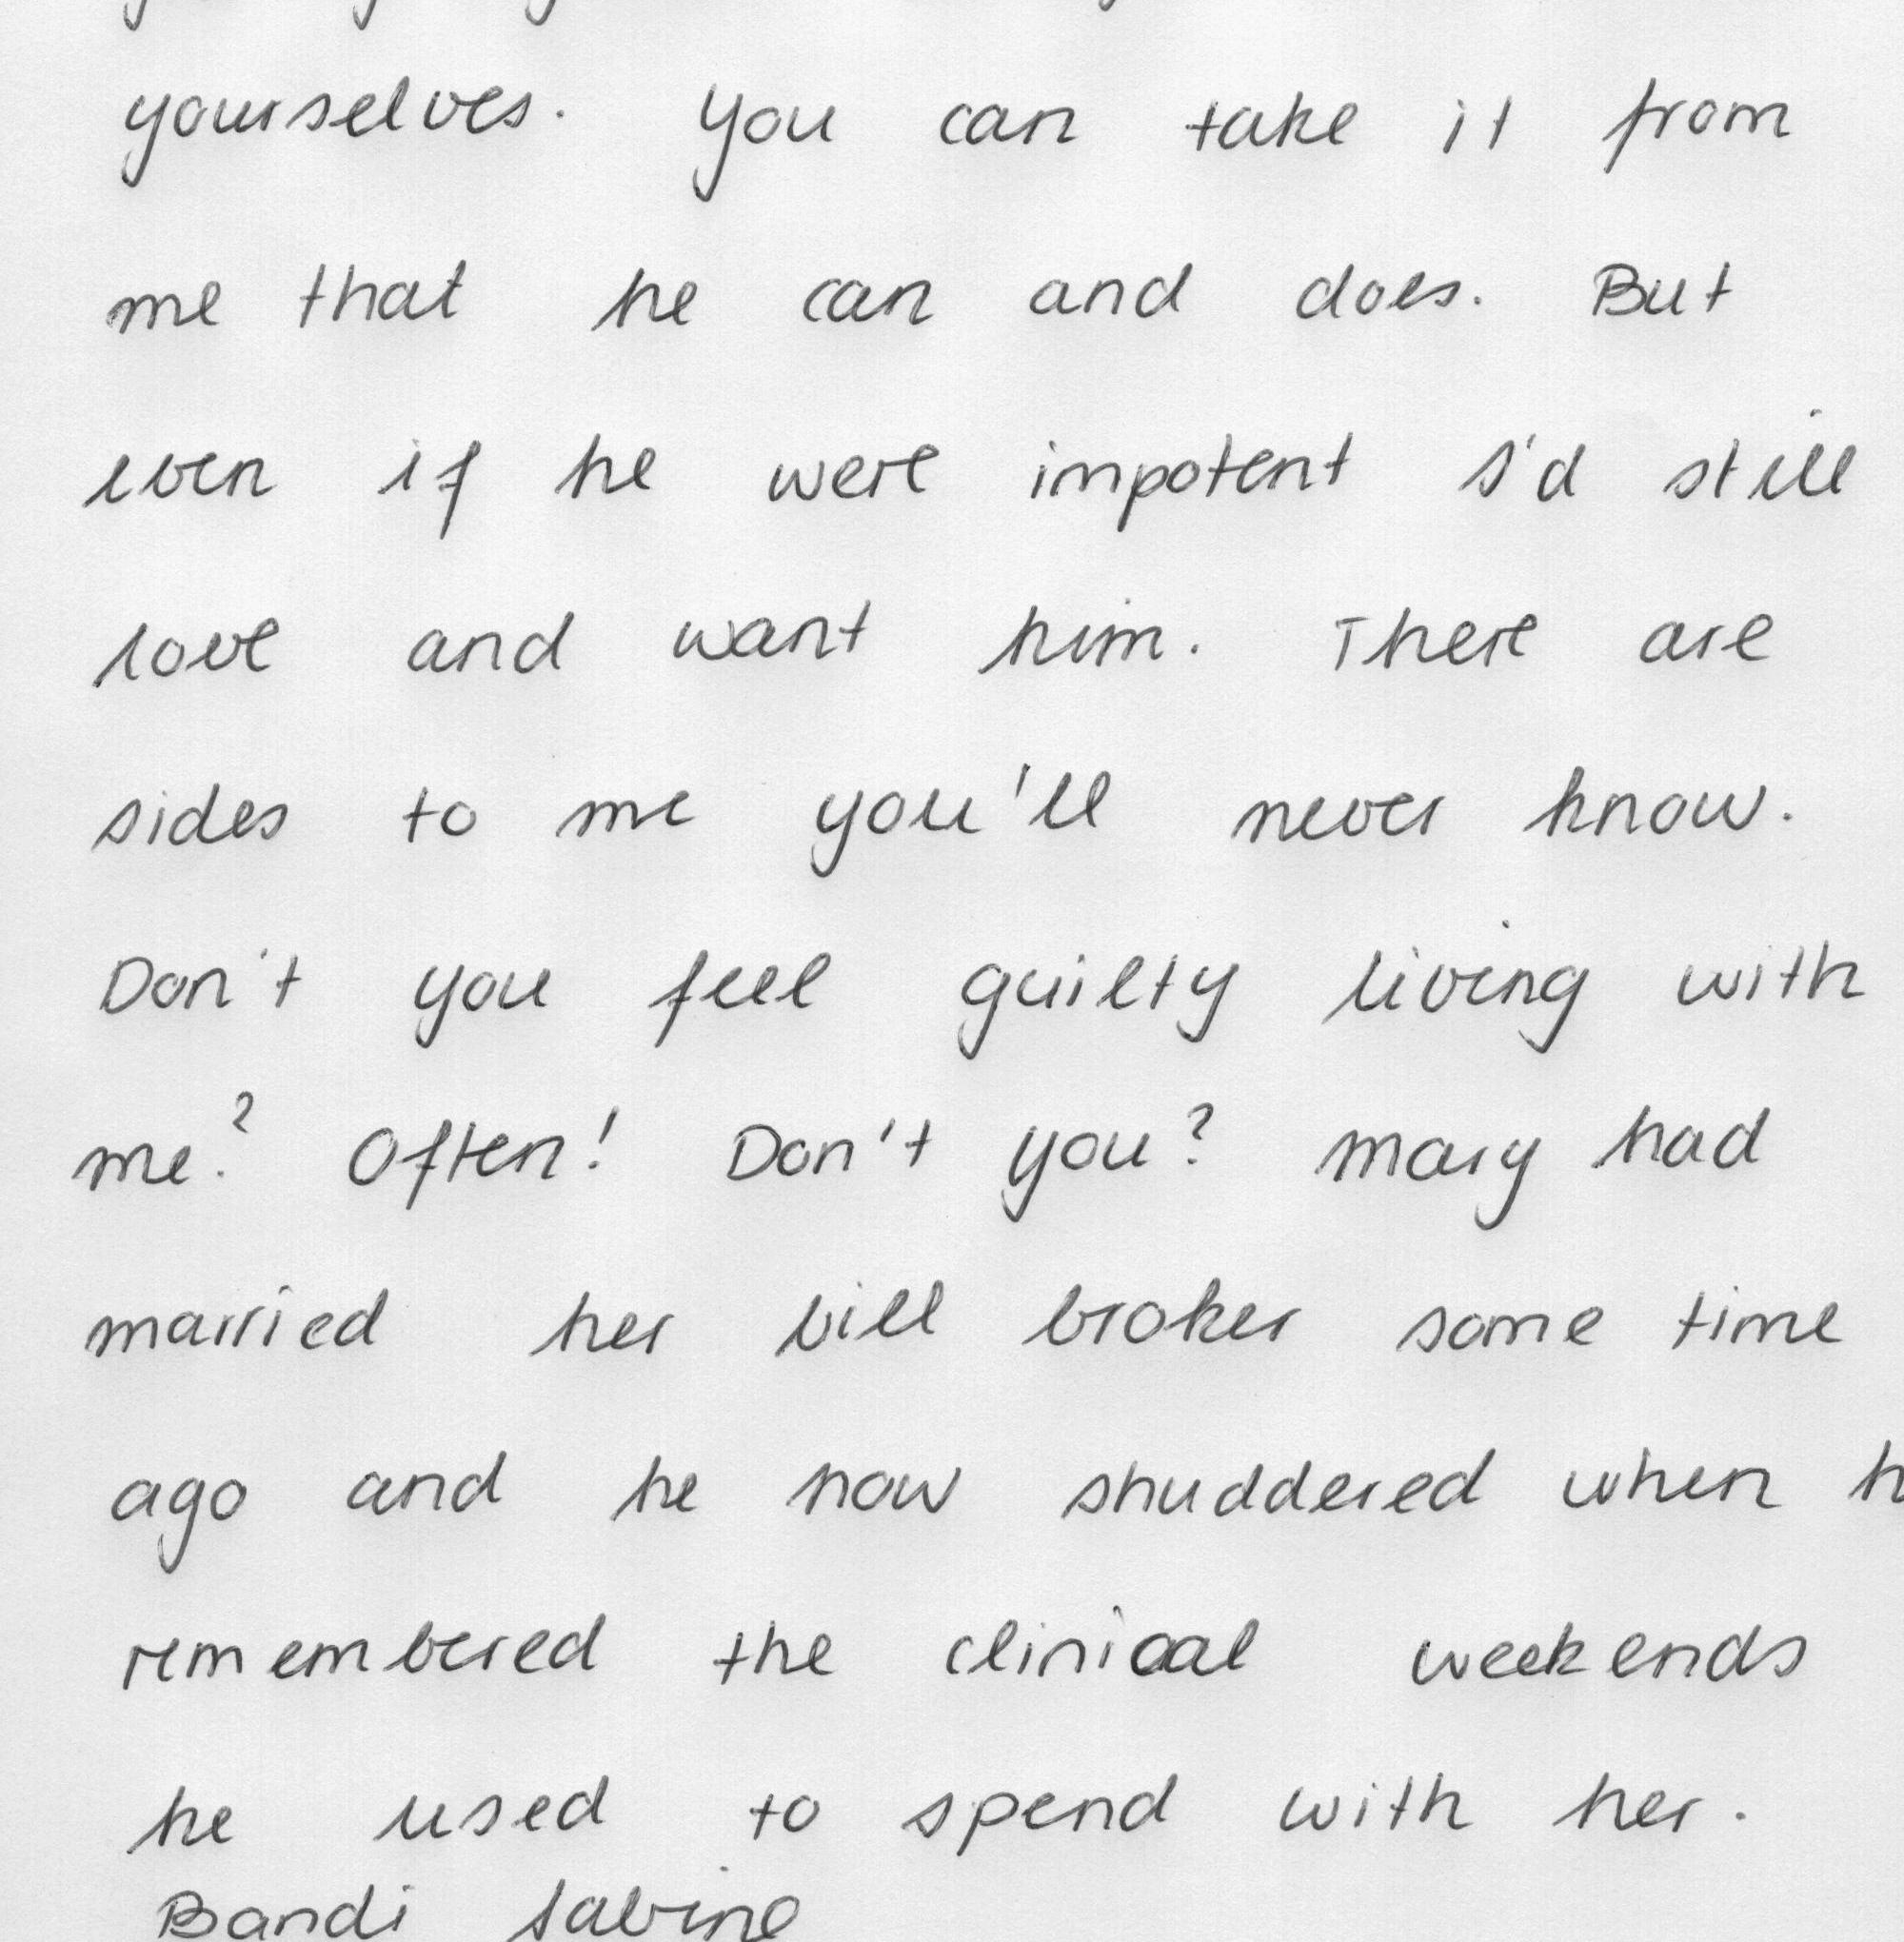 yourselves. You can take it from
me that he can and does. But
even if he were impotent I'd still
love and want him. There are
sides to me you'll never know.
Don't you feel guilty living with
me? Often! Don't you? Mary had
married her bill broker some time
ago and he now shuddered when h
remembered the clinical weekends
he used to spend with her.
Bandi Sabine